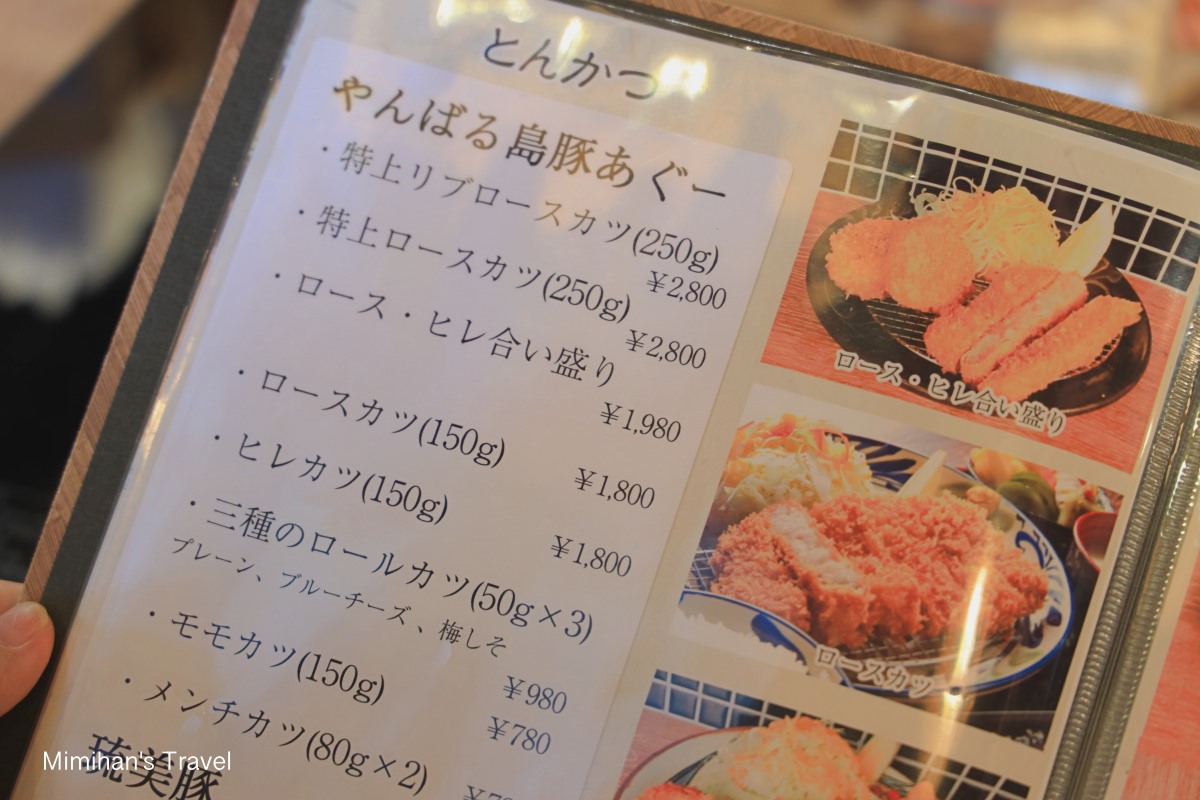 とんかつ
やんばる島豚あぐー
・特上リブロースカツ(250g)
¥2,800
・特上ロースカツ(250g)
¥2,800
・ロース・ヒレ合い盛り
¥1,980
・ロースカツ(150g)
¥1,800
・ヒレカツ(150g)
¥1,800
・三種のロールカツ(50g×3)
プレーン、ブルーチーズ、梅しそ
¥980
・モモカツ(150g)
¥780
・メンチカツ(80g×2)
琉美豚
ロース・ヒレ合い盛り
ロースカツ
Mimihan's Travel